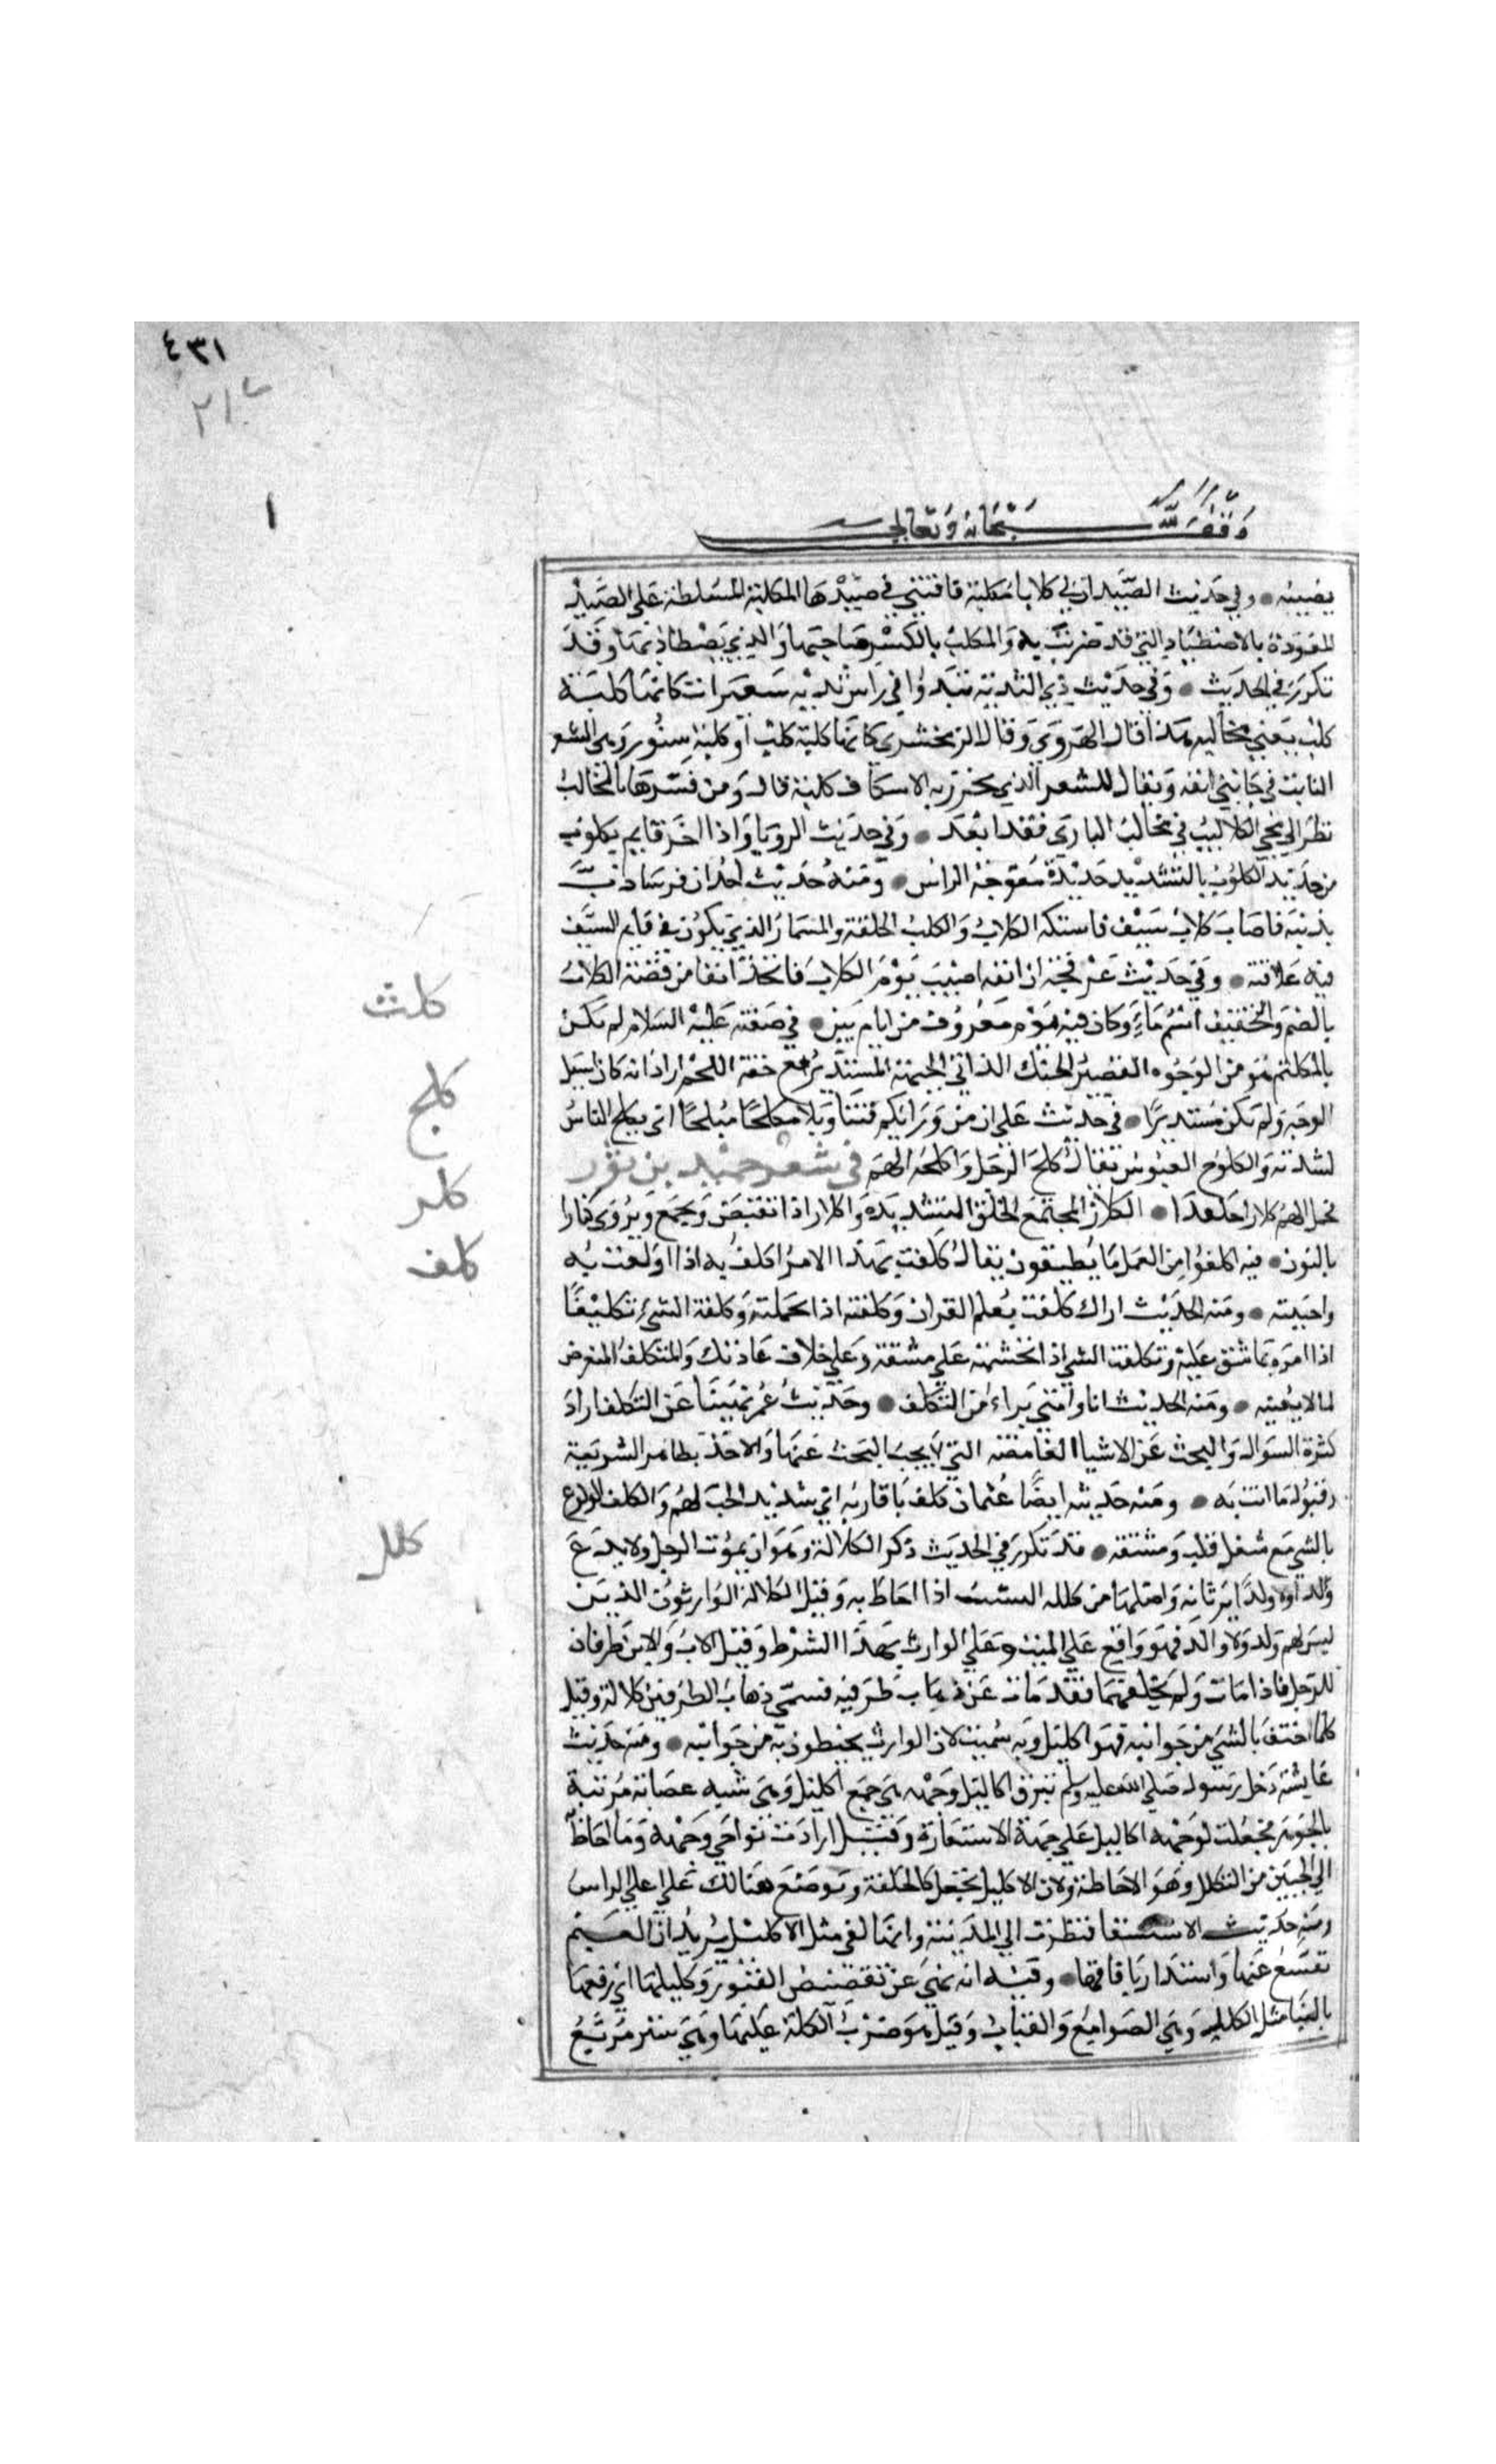 ٤٣١
٢١٧
١
وقف لله سبحانه وتعالى
يصيبه ● وفي حديث الصيد ان لي كلابا مكلبة فافتني في صيدها المكلبة المسلطة على الصيد
المعودة بالاصطياد التي قد ضريت به والمكلب بالكسر صاحبها والذي يصطاد بها وقد
تكرر في الحديث ● وفي حديث ذي الثدية يبدوا في راس ثديه شعيرات كانها كلبة
كلب يعني مخاليبه هذا قال الهروي وقال الزمخشري كانها كلبة كلب او كلبة سنور وهي الشعر
النابت في جانبي انفه ويقال للشعر الذي يخرز به الاسكاف كلبة قال ومن فسرها بالمخالب
نظرا الى مجي الكلاليب في مخالب البازي فقد ابعد ● وفي حديث الرويا واذا اخر قايم بكلوب
من حديد الكلوب بالتشديد حديدة معوجة الراس ● ومنه حديث احد ان فرسا ذب
بذنبه فاصاب كلاب سيف فاستله الكلاب والكلب الحلقة والمسمار الذي يكون في قايم السيف
فيه علاقته ● وفي حديث عرفجة ان انفه اصيب يوم الكلاب فاتخذ انفا من فضة الكلاب
بالضم والتخفيف اسم ماء وكان فيه يوم معروف من ايام بين ● في صفته عليه السلام لم يكن
بالمكلثم هو من الوجوه القصير الحنك الداني الجبهة المستدير مع خفة اللحم اراد انه كان اسيل
الوجه ولم يكن مستديرا ● في حديث علي ان من ورائكم فتنا وبلا مكلحا مبلحا اي يكلح الناس
لشدته والكلوح العبوس يقال كلح الرجل واكلحه الهم في شعر حميد بن ثور
فحمل الهم كلازا جلعدا ● الكلاز المجتمع الخلق الشديده واكلاز اذا انقبض وتجمع ويروى كنازا
بالنون ● فيه اكلفوا من العمل ما يطيقون يقال كلفت بهذا الامر اكلف به اذا اولعت به
واحبيته ● ومنه الحديث اراك كلفت بعلم القران وكلفته اذا تحملته وكلفه الشيء تكليفا
اذا امره بما شق عليه وتكلفت الشي اذا تجشمته على مشقة وعلى خلاف عادتك والمتكلف المتعرض
لما لا يعنيه ● ومنه الحديث انا وامتي براء من التكلف ● وحديث عمر نهينا عن التكلف اراد
كثرة السوال والبحث عن الاشيا الغامضة التي لا يجب البحث عنها والاخذ بظاهر الشريعة
وقبول ما اتت به ● ومنه حديثه ايضا عثمان كلف باقاربه اي شديد الحب لهم والكلف الولوع
بالشي مع شغل قلب ومشقه ● قد تكرر في الحديث ذكر الكلالة وهو ان يموت الرجل ولا يدع
والدا ولا ولدا يرثانه واصلها من كلله النسب اذا احاط به وقيل الكلالة الوارثون الذين
ليس لهم ولد ولا والد فهو واقع على الميت وعلى الوارث بهذا الشرط وقيل الاب والابن طرفان
للرجل فاذا مات ولم يخلفهما فقد مات عن ذهاب طرفيه فسمى ذهاب الطرفين كلالة وقيل
كلما احتف بالشي من جوانبه فهو اكليل وبه سميت لان الوارث يحيطون به من جوانبه ● ومنه حديث
عايشة دخل رسول صلى الله عليه وسلم تبرق اكاليل وجهه هي جمع اكليل وهي شبه عصابة مزينة
بالجوهر فجعلت لوجهه اكاليل على جهة الاستعارة وقيل ارادت نواحي وجهه وما احاط
الى الجبين من التكلل وهو الاحاطة ولان الاكليل يجعل كالحلقة ويوضع هنالك على اعلى الراس
ومنه حديث الاستسقا فنظرت الى المدينة وانها لفي مثل الاكليل يريد ان الغيم
تقشع عنها واستدار بافاقها ● وفيه انه نهى عن تقصيص القبور وتكليلها اي رفعها
بالبنا مثل الكلل وهي الصوامع والقباب وقيل هو ضرب الكلة عليها وهي ستر مربع
كلث
كلح
كلز
كلف
كلل